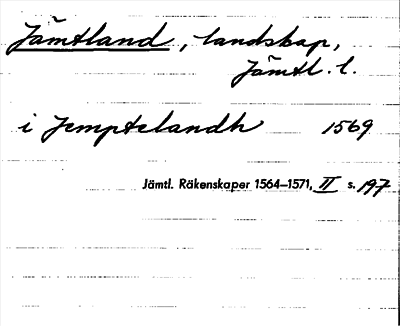 Jämtland, landskap,
Jämtl. l.
i Jemptelandh 1569
Jämtl. Räkenskaper 1564–1571, II s. 197